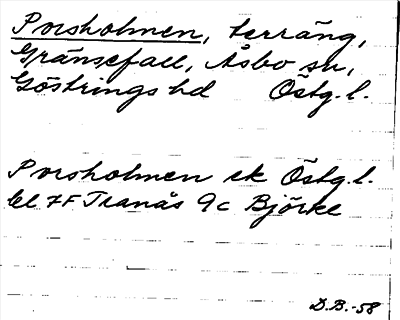 Porsholmen, terräng,
Gränsefall, Åsbo sn,
Göstrings hd Östg.l.
Porsholmen ek Östg.l.
bl 7F Tranås 9c Björke
D.B.-58